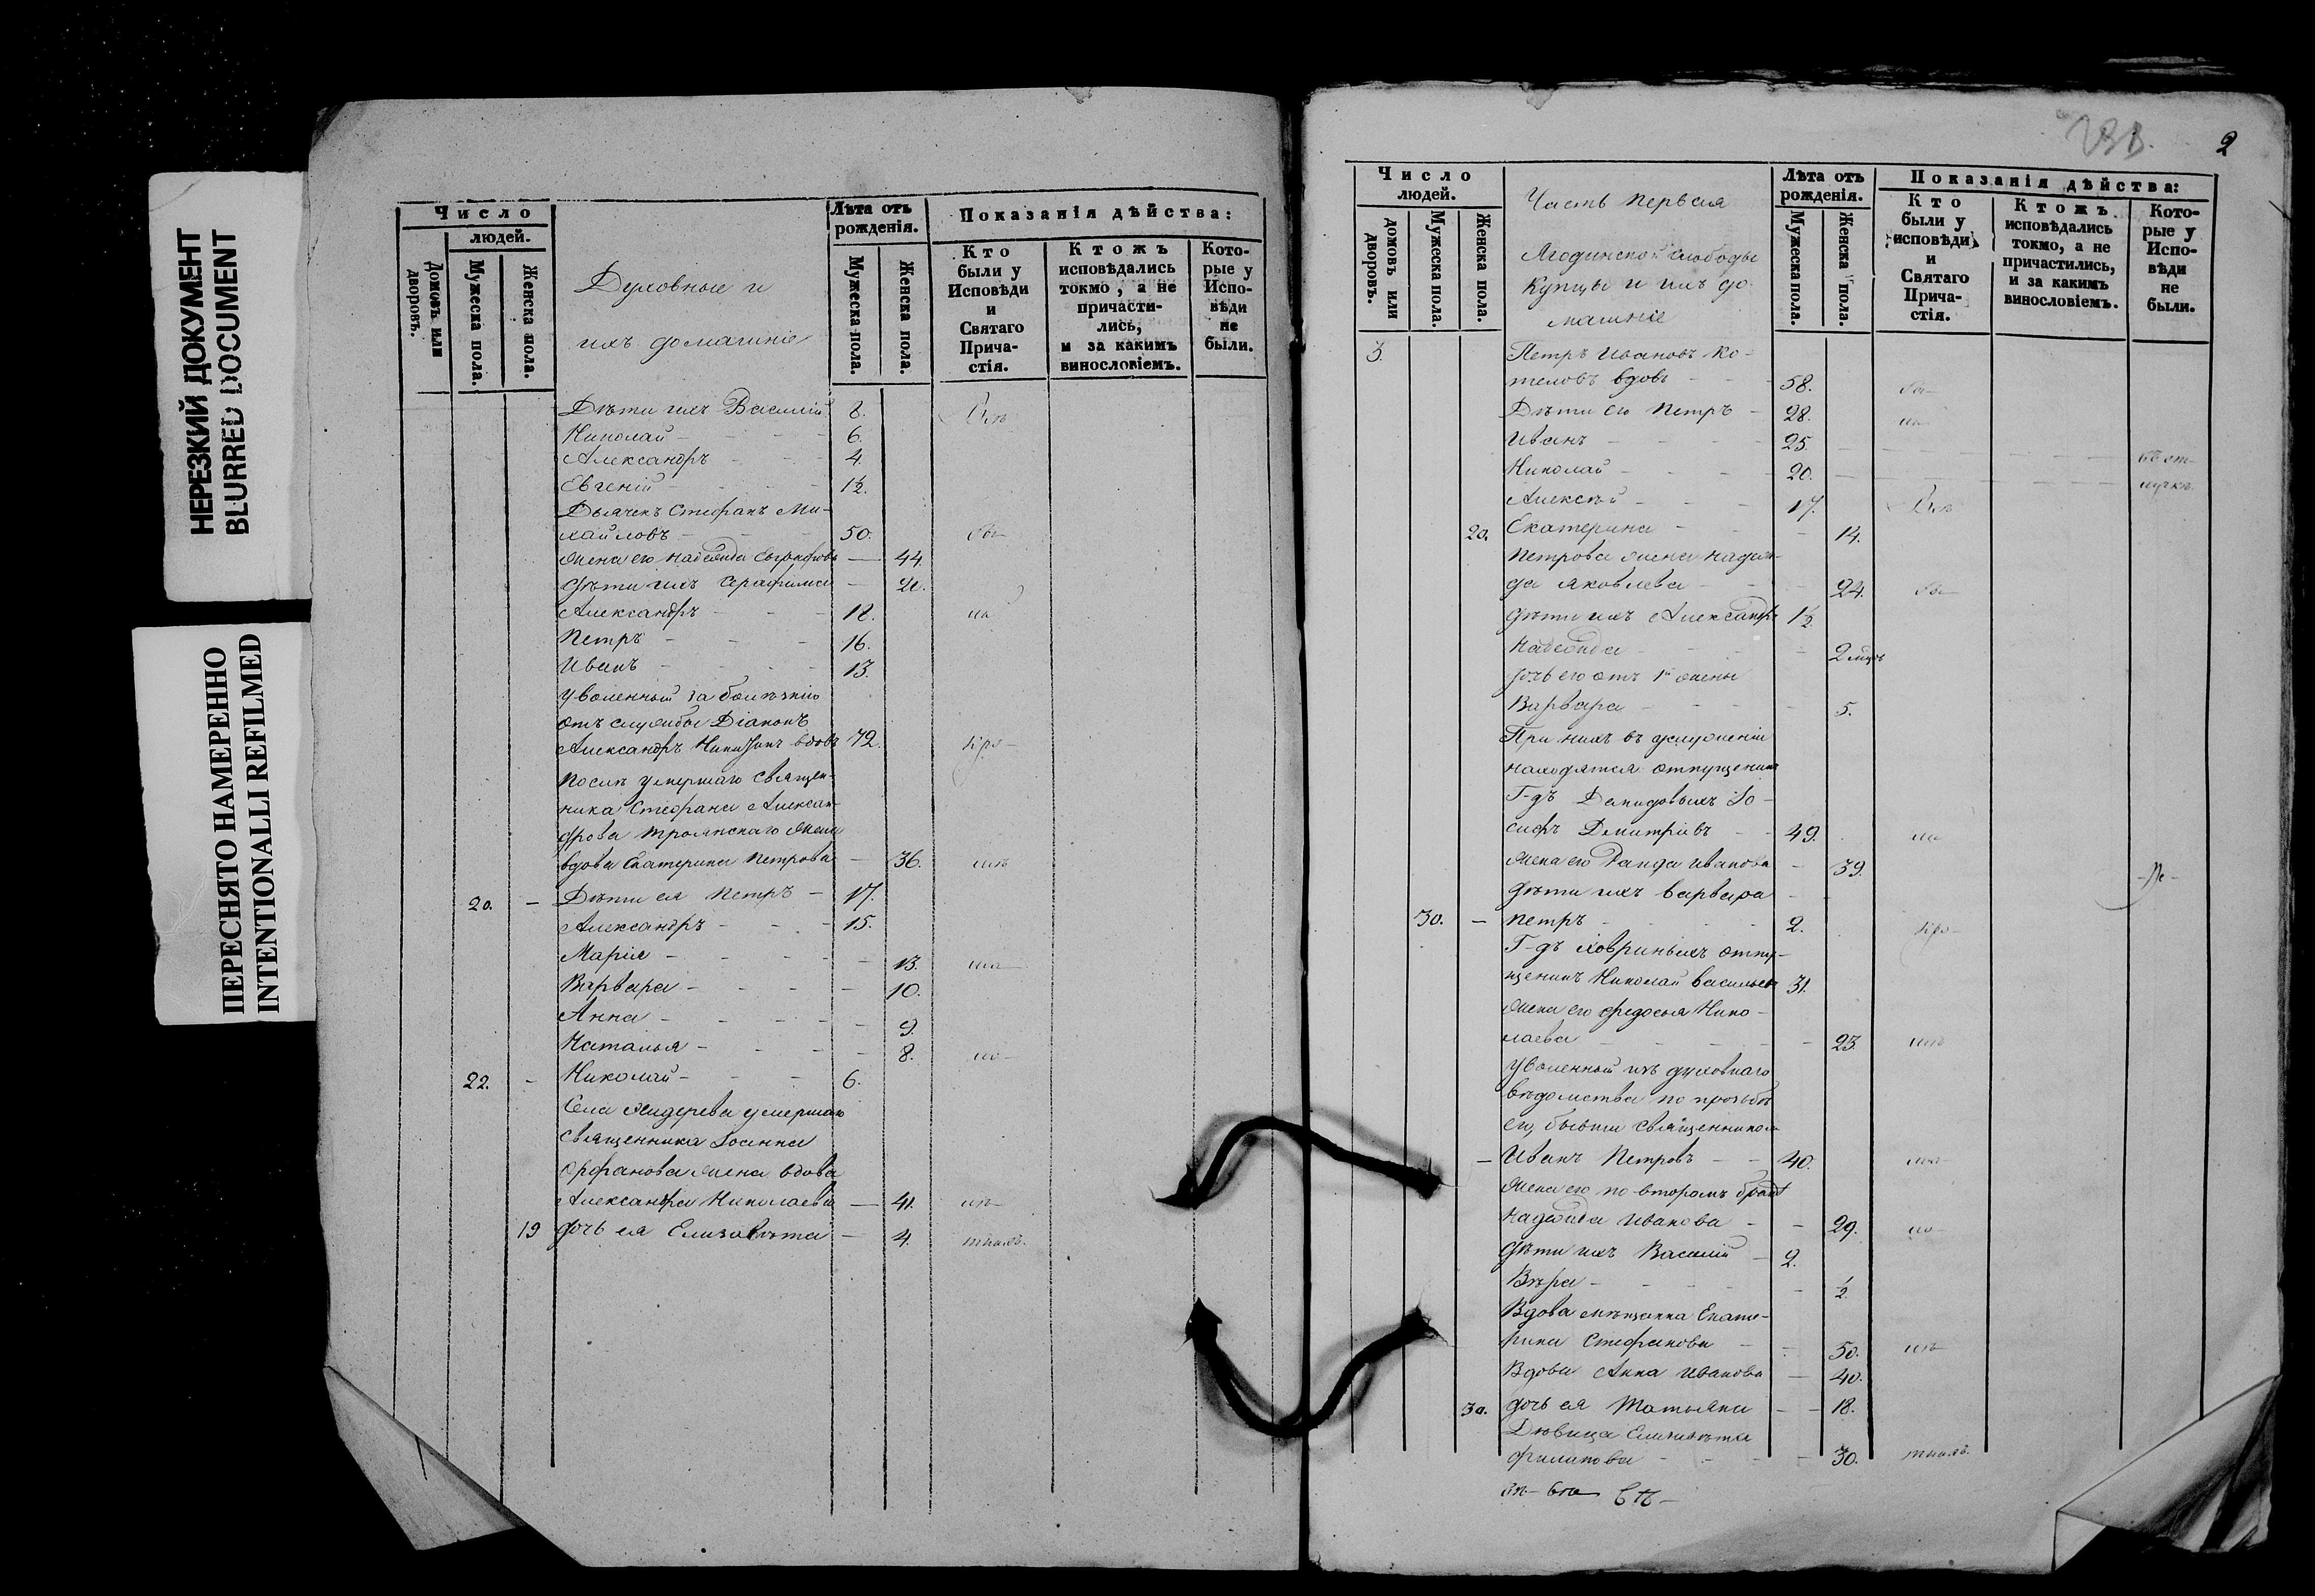 НЕРЕЗКИЙ ДОКУМЕНТ
BLURRED DOCUMENT
ПЕРЕСНЯТО НАМЕРЕННО
INTENTIONALLI REFILMED
Число
людей.
Домовъ или дворовъ.
Мужеска пола.
Женска пола.
Духовные и
ихъ домашніе
Лѣта отъ рожденія.
Мужеска пола.
Женска пола.
Показанія дѣйства:
Кто были у Исповѣди и Святаго Прича-стія.
Ктожъ исповѣдались токмо, а не причасти-лись, и за какимъ винословіемъ.
Кото-рые у Испо-вѣди не были.
Дѣти ихъ Василій 8.
Николай - 6.
Александръ - 4.
Евгеній 1½.
Дьячекъ Стефанъ Ми-
хайловъ - 50.
жена его Надежда - 44.
дѣти ихъ Серафима -
Александръ - 18.
Петръ - 16.
Иванъ - 13.
Уволенный за болѣзнію
отъ службы Діаконъ
Александръ вдовъ 72.
Послѣ умершаго священ-
ника Стефана Алексан-
дрова Троянскаго жена
вдова Екатерина Петрова - 36.
20. - Дѣти ея Петръ - 17.
Александръ - 15.
Марія - 13.
Варвара - 10.
Анна - 9.
Наталья - 8.
22. - Николай - 6.
Села умершаго
священника Іоанна
Орфанова жена вдова
Александра Николаева - 41.
19 дочь ея Елизавѣта - 4.
2
Число
людей.
домовъ или дворовъ.
Мужеска пола.
Женска пола.
Часть первая
Ягодинской слободы
Купцы и ихъ до-
машніе
Лѣта отъ рожденія.
Мужеска пола.
Женска пола.
Показанія дѣйства:
Кто были у исповѣди и Святаго Прича-стія.
Ктожъ исповѣдались токмо, а не причастились, и за какимъ винословіемъ.
Кото-рые у Испо-вѣди не были.
3. Петръ Ивановъ Ко-
теловъ вдовъ - 58.
Дѣти его Петръ - 28.
Иванъ - 25. въ от-
Николай - 20. лучкѣ.
Алексѣй - 17.
20. Екатерина - 14.
Петрова жена Надеж-
да Яковлева - 24.
дѣти ихъ Александръ 1½
Надежда - 2 мѣс.
дочь его отъ 1й жены
Варвара - 5.
При нихъ въ услуженіи
находятся отпущенникъ
Г-дъ Іо-
сифъ Димитріевъ - 49.
жена его Ивановна - 39.
дѣти ихъ Варвара -
30. - Петръ - 2.
Г-дъ Ховриныхъ отпу-
щенникъ Николай Васильевъ 31.
жена его Федосья Нико-
лаева - 23.
Уволенный изъ духовнаго
вѣдомства по прозьбѣ
его, бывши священникомъ
- Иванъ Петровъ - 40.
жена его по второмъ бракѣ
Надежда Иванова - 29.
дѣти ихъ Василій - 2.
Вѣра - ½
Вдова мѣщанка Екате-
рина Стефанова - 50.
Вдова Анна Иванова - 40.
30. дочь ея Татьяна - 18.
Дѣвица Елизавѣта
Филипова - 30.